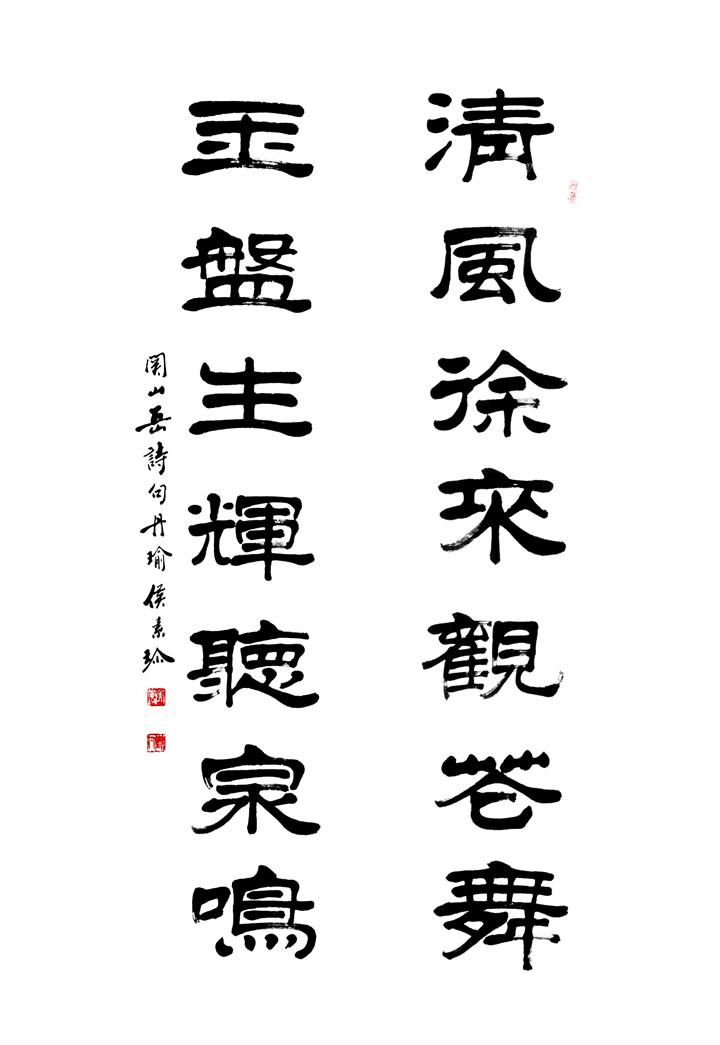 清風徐來觀花舞
玉盤生輝聽泉鳴
関山岳詩句丹瑜侯素珍